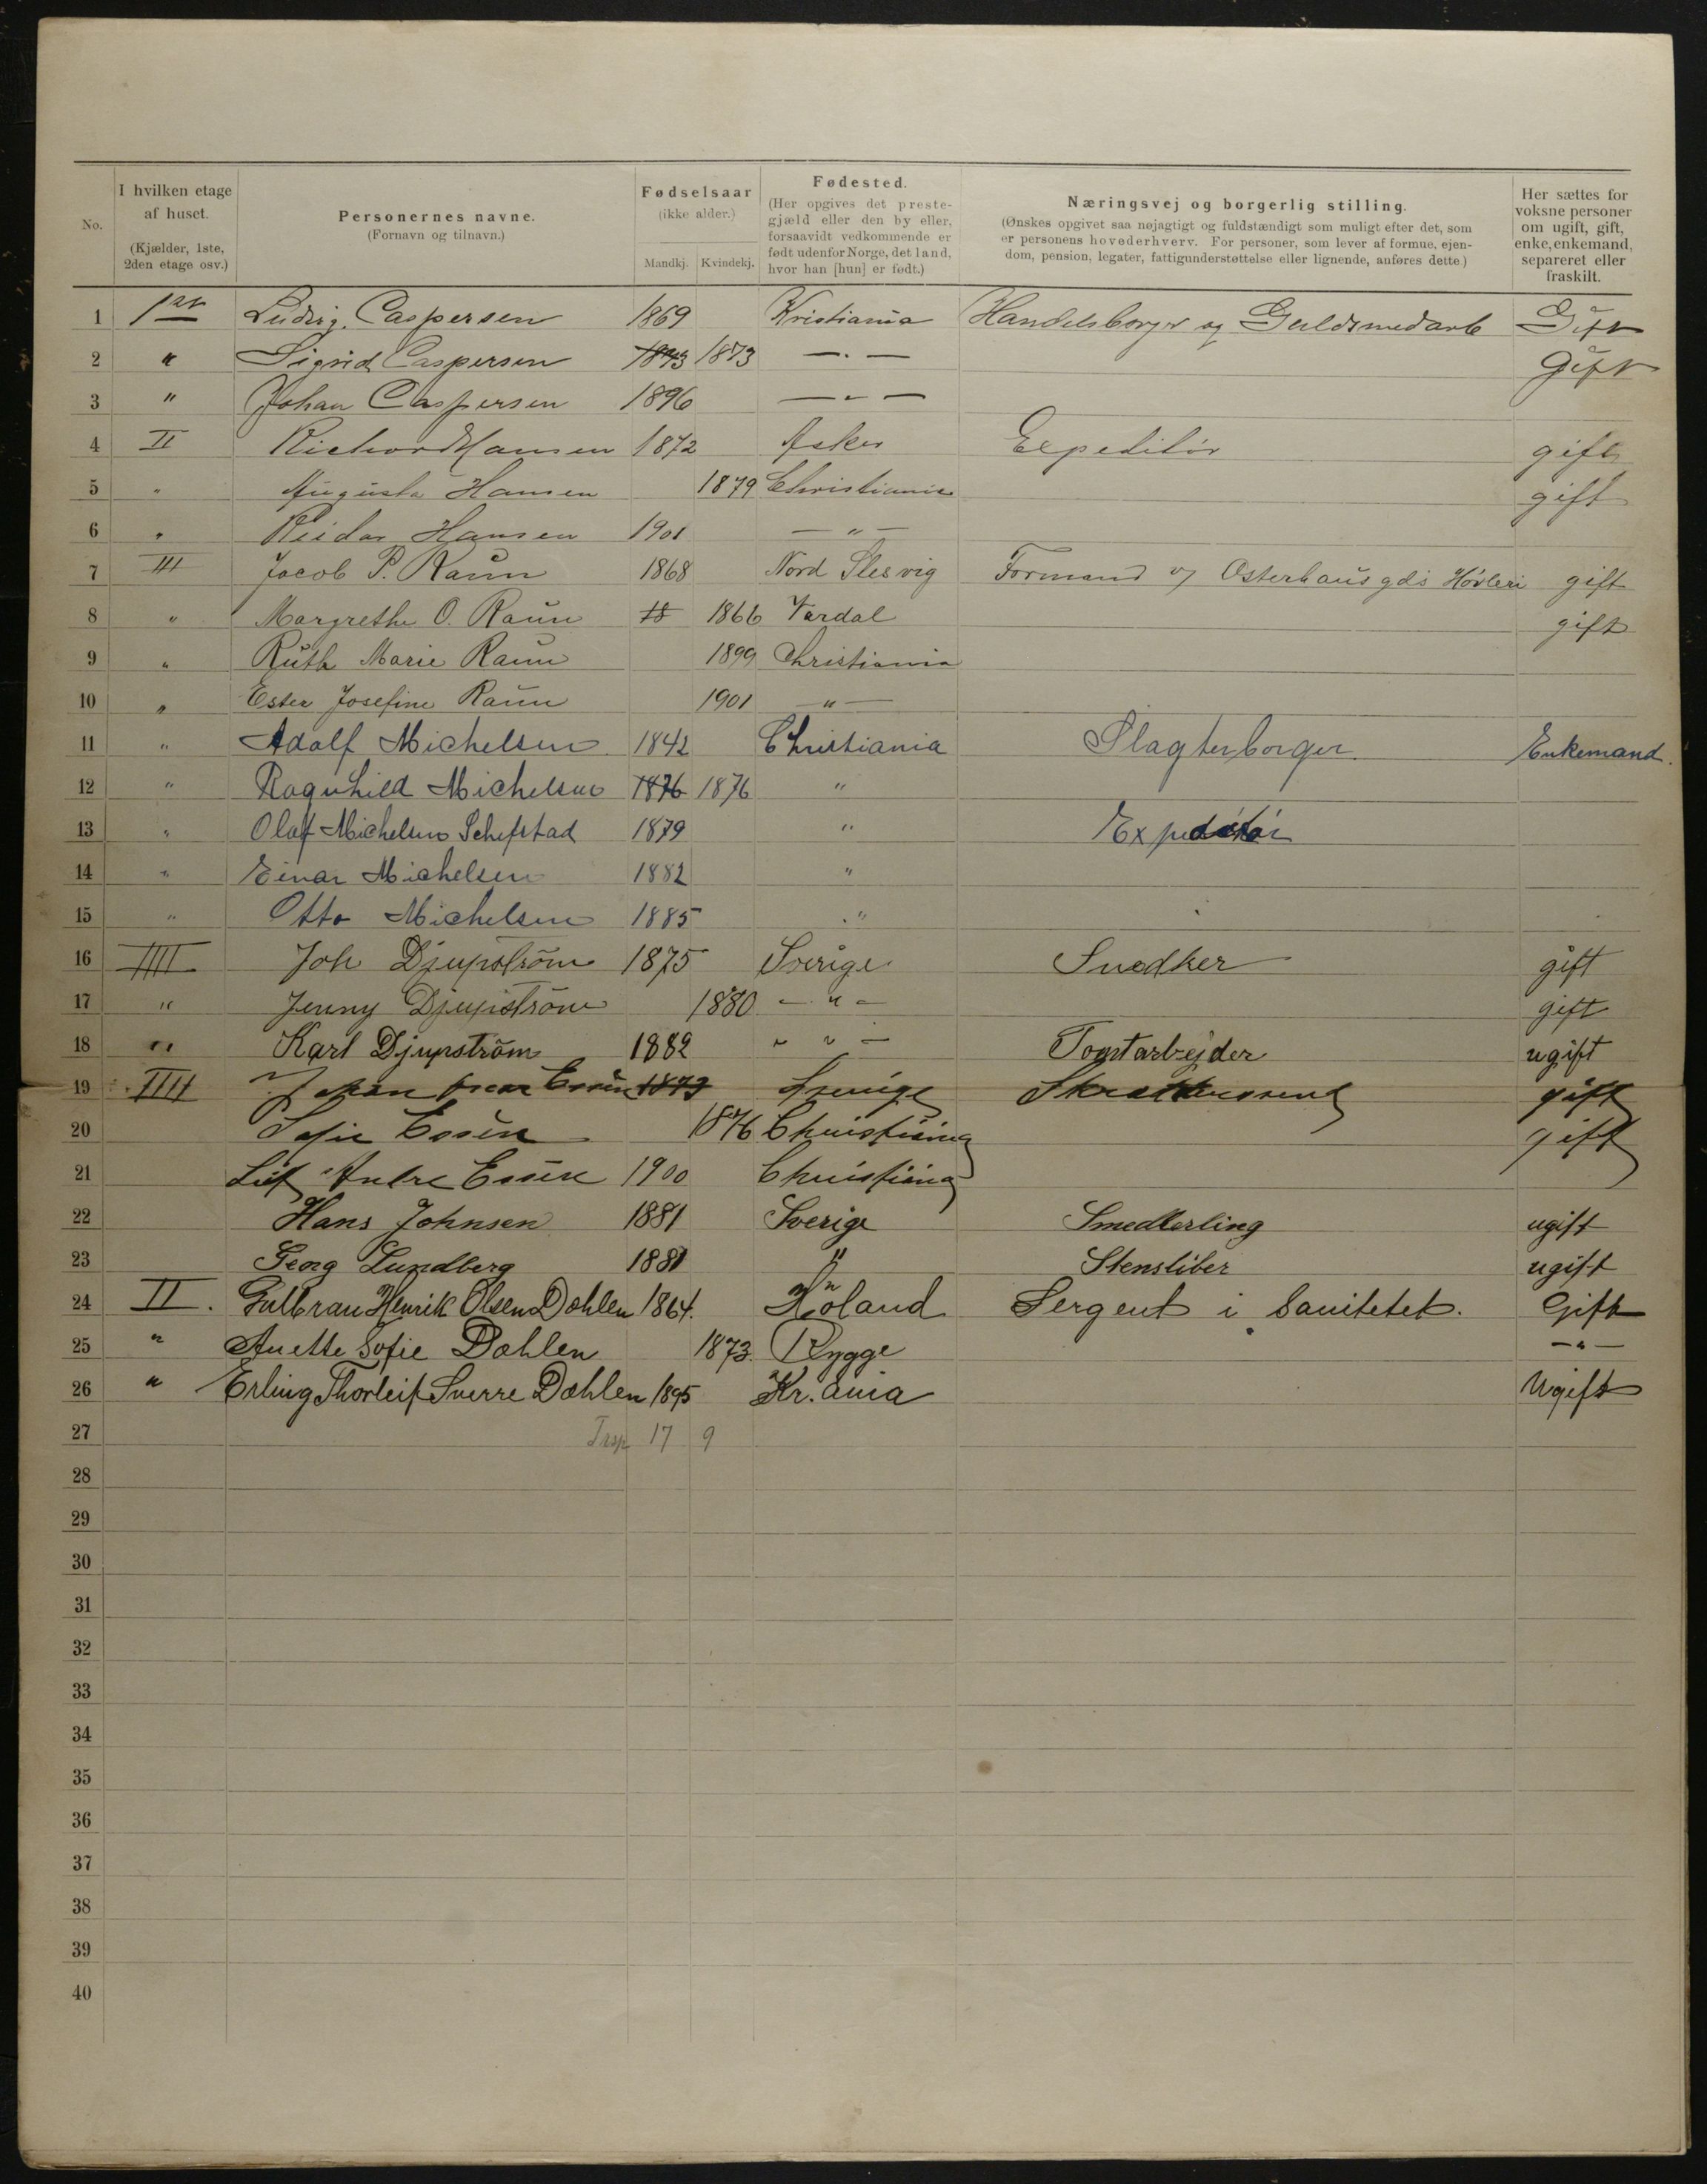 No. I hvilken etage af huset. (Kjælder, 1ste, 2den etage osv.) Personernes navne. (Fornavn og tilnavn.) Fødselsaar (ikke alder.) Mandkj. Kvindekj. Fødested. (Her opgives det prestegjæld eller den by eller, forsaavidt vedkommende er født udenfor Norge, det land, hvor han [hun] er født.) Næringsvej og borgerlig stilling. (Ønskes opgivet saa nøjagtigt og fuldstændigt som muligt efter det, som er personens hovederhverv. For personer, som lever af formue, ejendom, pension, legater, fattigunderstøttelse eller lignende, anføres dette.) Her sættes for voksne personer om ugift, gift, enke, enkemand, separeret eller fraskilt.
1 1ste Ludvig. Caspersen 1869 Kristiania Handelsborger og Guldsmedarb Gift
2 " Sigrid Caspersen 1873 1873 — . — Gift
3 " Johan Caspersen 1896 — " —
4 II Richard Hansen 1872 Asker Expeditör gift
5 " Augusta Hansen 1879 Christiania gift
6 " Reidar Hansen 1901 — " —
7 III Jacob P. Raun 1868 Nord Slesvig Formand v/ Osterhausgds Høvleri gift
8 " Margrethe O. Raun 18 1866 Vardal gift
9 " Ruth Marie Raun 1899 Christiania
10 " Ester Josefine Raun 1901 — " —
11 " Adolf Michelsen 1842 Christiania Slagterborger Enkemand.
12 " Ragnhild Michelsen 1876 1876 "
13 " Olaf Michelsen Schefstad 1879 " Expeditör
14 " Einar Michelsen 1882 "
15 " Otto Michelsen 1885 "
16 IIII Joh Djupström 1875 Sverige Snedker gift
17 " Jenny Djupström 1880 — " — gift
18 " Karl Djupström 1882 " " — Tomtarbejder ugift
19 IIII Johan Essén 1873 Sverige gift
20 Sofie Essén 1876 Christiania gift
21 Leif Andre Essén 1900 Christiania
22 Hans Johnsen 1881 Sverige Smedlerling ugift
23 Georg Lundberg 1881 " Stensliber ugift
24 II. Gulbran Henrik Olsen Dæhlen 1864. Høland Sergent i Sanitetet. Gift
25 " Anette Sofie Dæhlen 1873. Rygge — " —
26 " Erling Thorleif Sverre Dæhlen 1895 Kr.ania Ugift
27 Trsp 17 9
28
29
30
31
32
33
34
35
36
37
38
39
40